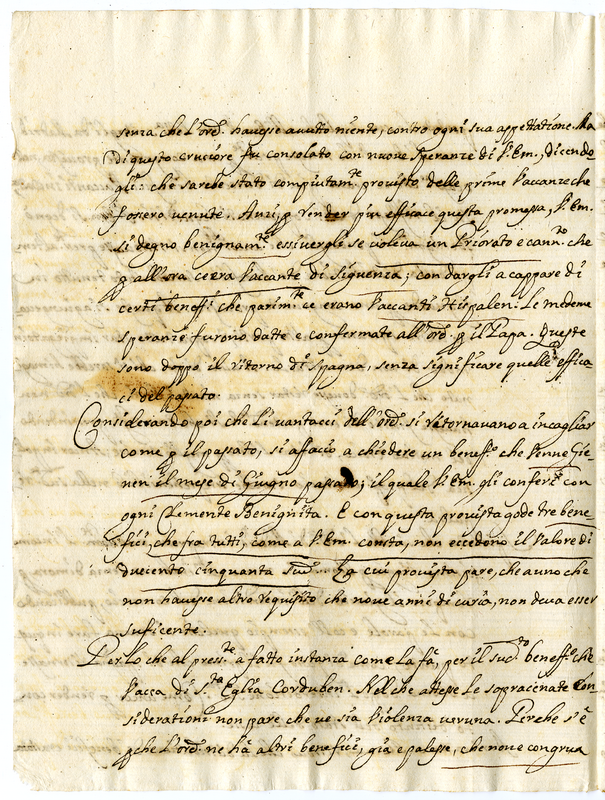 senza che l'ord.e havesse avutto niente, contro ogni sua aspettatione. Ma
di questo cruciore fu consolato con nuove speranze di V.Em., dicendo
gli: che sarebe stato compiutam.te provisto delle prime Vaccanze che
fossero venute. Anzi, p render piu efficace questa promessa, V.Em.
si degno benignam.te escrivergli se voleva un Priorato e cann.to che
p all'ora cera Vaccante di Siguenza; con dargli a cappare di
certi benef.i che parim.te ce erano Vaccanti Hispalen. Le medeme
speranze furono datte e confermate all'ord.e p il Papa. Queste
sono doppo il ritorno di Spagna, senza significare quelle effica
ci del passato.
Considerando poi che li vantacci dell'ord.e si ritornavano a incagliar
come p il passato, si affaccio a chiedere un benef.o che Venne Gie-
nen il mese di Giugno passato; il quale V.Em. gli confer con
ogni Clemente Benignita. E con questa provista gode tre bene
fici, che fra tutti, come a V.Em. consta, non eccedono il Valore di
duecento cinquanta scud. La cui provista pare, che a uno che
non havesse altro requisito che nove anni di curia, non deva esser
suficente.
Per lo che al press.te a fatto instanza come la fa, per il sud.to benef.o che
Vacca di s.ta Eglia Corduben. Nel che attese le sopracenate con
siderationi non pare che ve sia Violenza veruna. Perche s'è
p che l'ord.e ne hà altri benefici, gia e palesse, che non e congrua